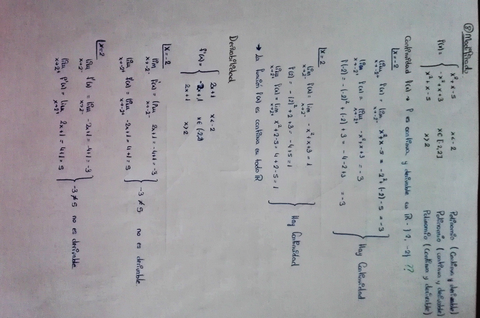 ② Modificado
f(x) = { x²+x-5 x<-2 Polinomio (continua y derivable)
-x²+x+3 x∈[-2,2] Polinomio (continua y derivable)
x²+x-5 x>2 Polinomio (continua y derivable)
Continuidad f(x) → f es continua y derivable en ℝ-{2,-2} ??
x=-2
lim x→-2⁻ f(x) = lim x→-2⁻ x²+x-5 = -2²+(-2)-5 = -3
lim x→-2⁺ f(x) = lim x→-2⁺ -x²+x+3 = -3
f(-2) = -(-2)²+(-2)+3 = -4-2+3 = -3
Hay Continuidad
x=2
lim x→2⁻ f(x) = lim x→2⁻ -x²+x+3 = 1
f(2) = -(2)²+2+3 = -4+5 = 1
lim x→2⁺ f(x) = lim x→2⁺ x²+x-5 = 4+2-5 = 1
Hay Continuidad
→ La función f(x) es continua en todo ℝ
Derivabilidad
f'(x) = { 2x+1 x<-2
-2x+1 x∈(-2,2)
2x+1 x>2
x=-2
lim x→-2⁻ f'(x) = lim x→-2⁻ 2x+1 = -4+1 = -3
lim x→-2⁺ f'(x) = lim x→-2⁺ -2x+1 = 4+1 = 5
-3 ≠ 5 no es derivable
x=2
lim x→2⁻ f'(x) = lim -2x+1 = -4+1 = -3
lim x→2⁺ f'(x) = lim x→2⁺ 2x+1 = 4+1 = 5
-3 ≠ 5 no es derivable.